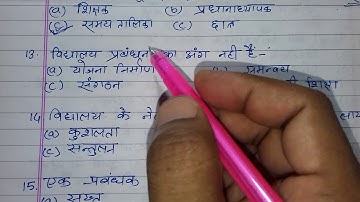 (a) शिक्षक (b) प्रधानाध्यापक
(c) समय तालिका (c) छात्र
13. विद्यालय प्रबंधन का अंग नही है-
(a) योजना निर्माण समन्वय
(c) संगठन शिक्षा
14. विद्यालय के
(a) कुशलता
(c) सन्तुलन
15. एक प्रबंधक
(a)